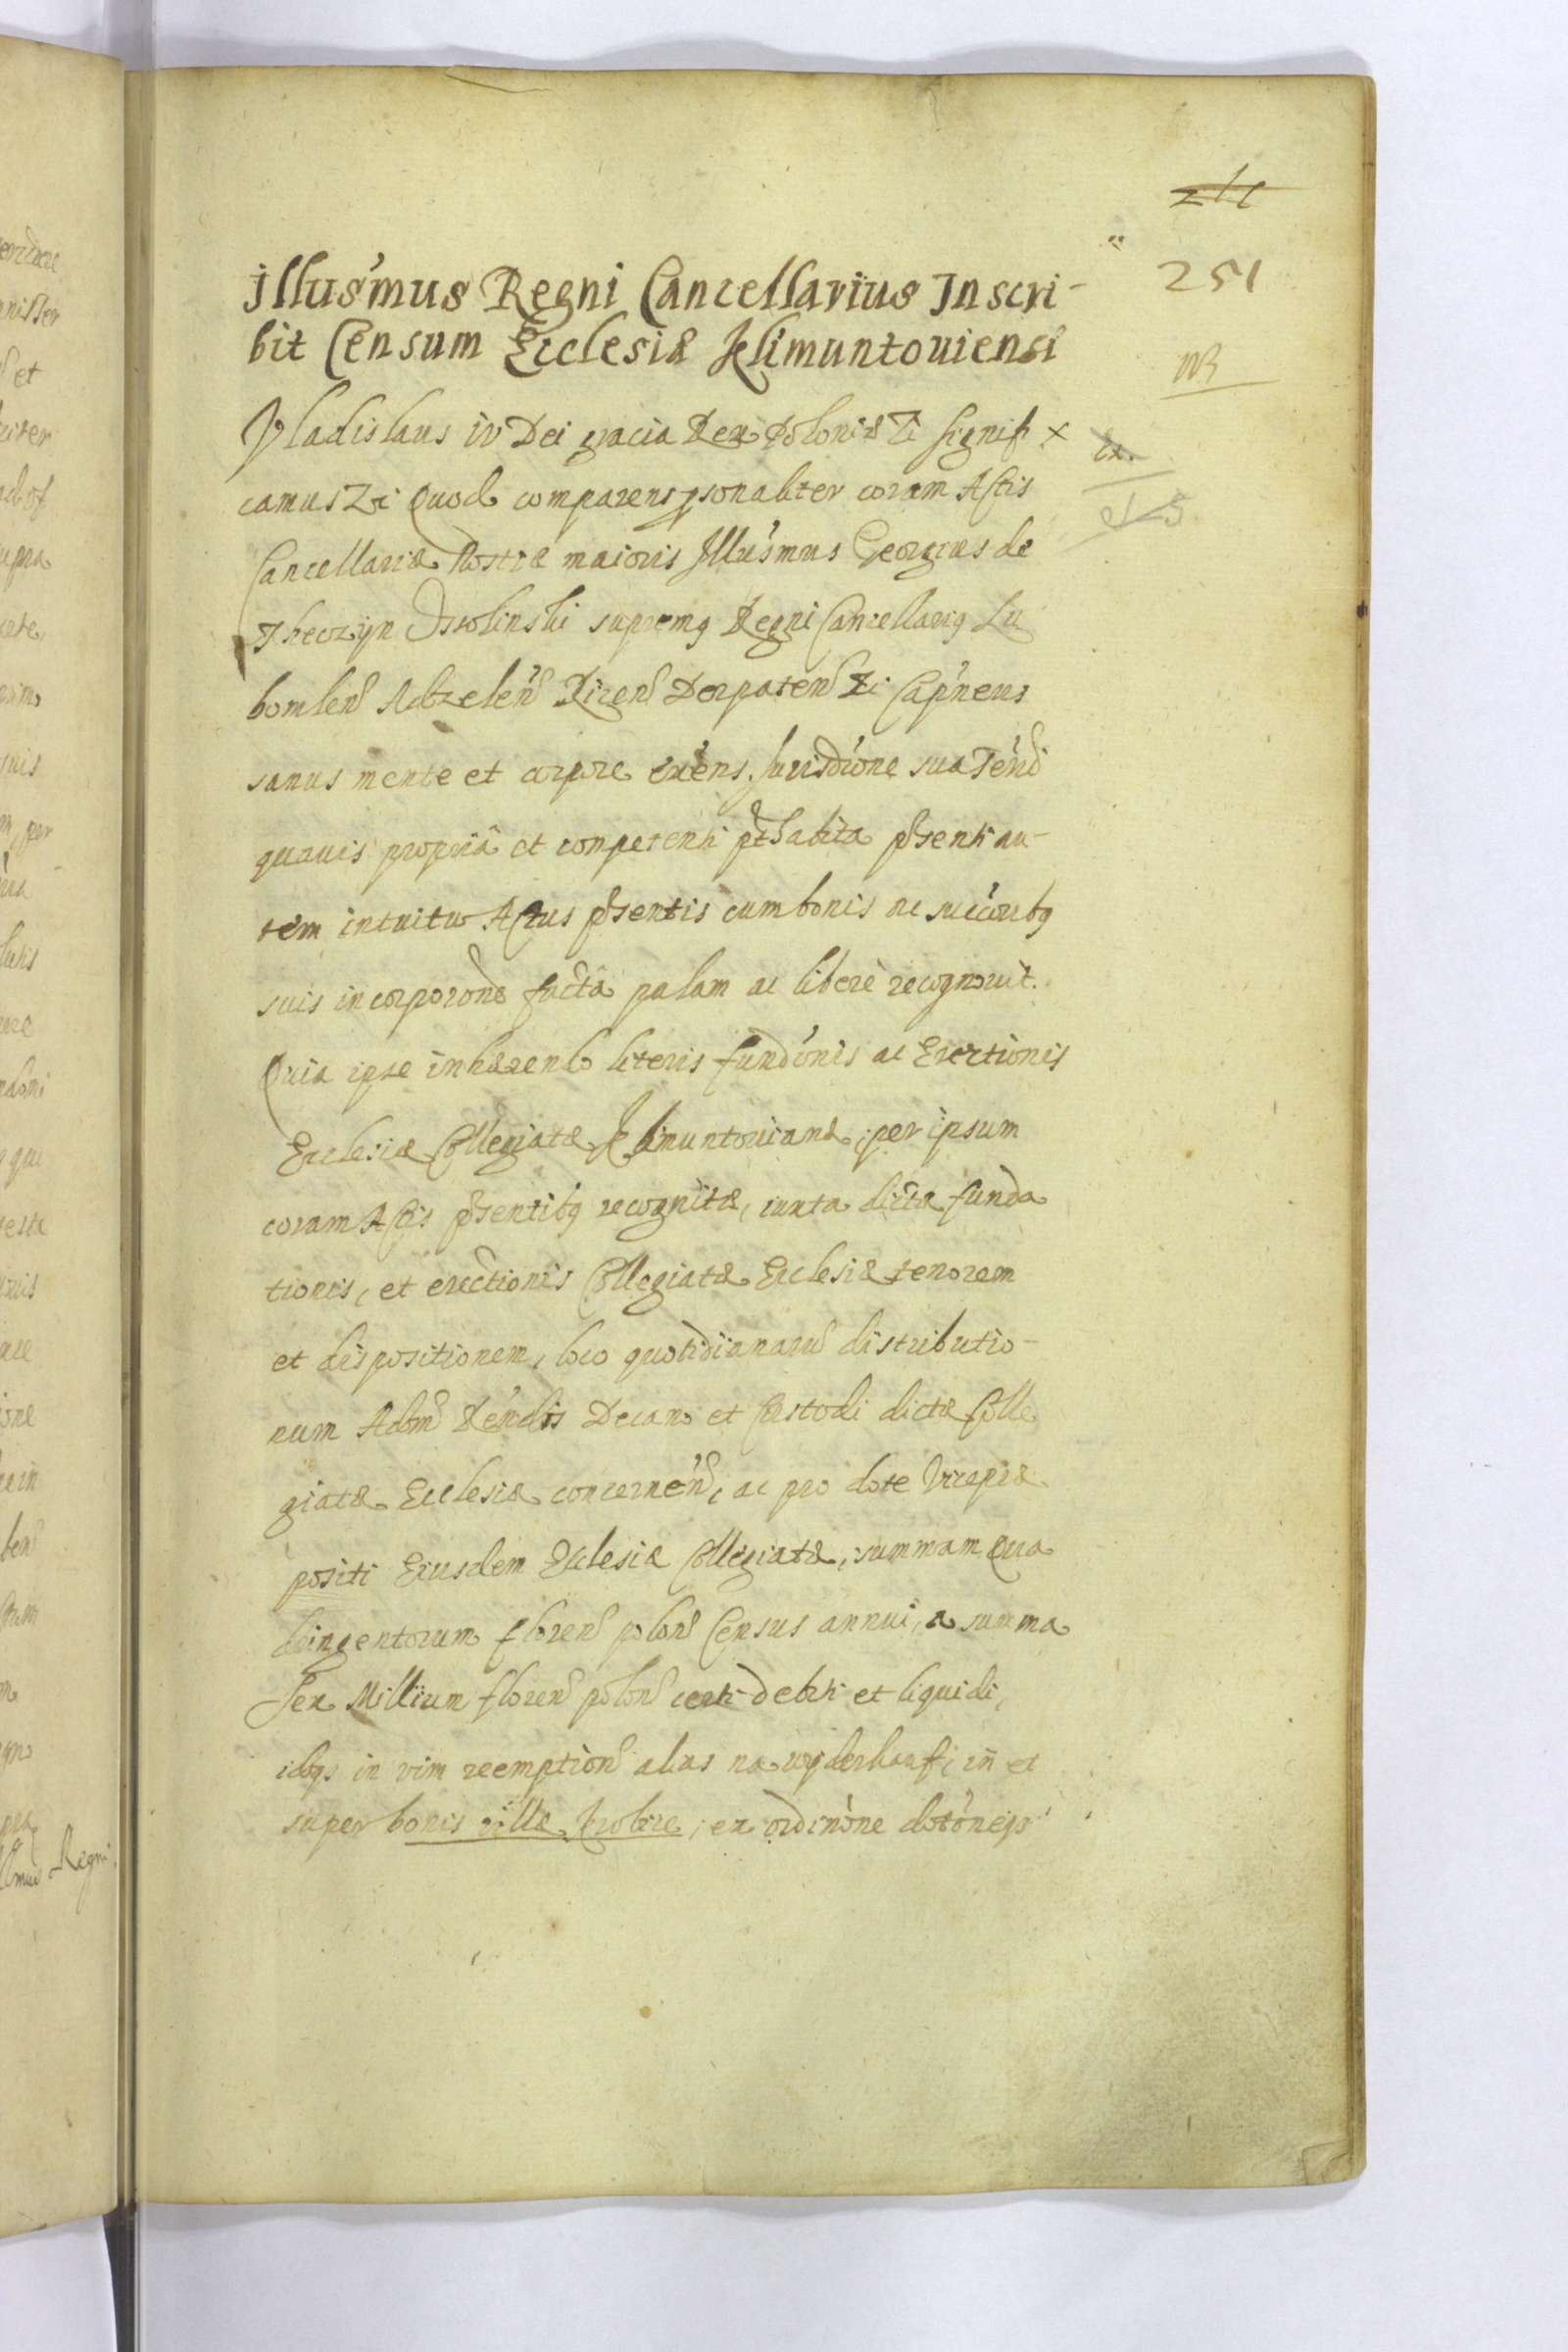 251
NB
Illus'mus Regni Cancellarius Inscri-
bit Censum Ecclesiæ Klimuntoviensi
Vladislaus iv Dei gracia Rex Poloniæ Signifi
camus Quod comparens psonaliter coram Actis
Cancellariæ Nostræ maioris Illus'mus Georgius de
Theczyn Ossolinski supremq Regni Cancellariq Lu
bomlen Adzelen Dorpaten Cap'neus
sanus mente et corpore exe'ns Jurisd'one sua
quavis propriâ et competenti p'habita p'senti au-
tem intuitu Actus p'sentis cum bonis ac succ'oribq
suis incorpor'one factâ palam ac liberè recognovit.
Quia ipse inhærendo literis fund'onis ac Erectionis
Ecclesiæ Collegiatæ Klimuntovianæ, per ipsum
coram Actis p'sentibq recognitæ, iuxta dictæ funda
tionis, et erectionis Collegiatæ Ecclesiæ tenorem
et dispositionem, loco quotidianaru distributio-
num Adm R'endis Decano et Custodi dictæ Colle
giatæ Ecclesiæ concernen, ac pro dote Vicepræ
positi Eiusdem Ecclesiæ Collegiatæ, summam Qua
dringentorum floren polon Census annui, a summa
Sex Millium floren polon certi debiti et liquidi,
in vim reemption alias na wyderkauf, in et
super bonis villæ, ex ordin'one